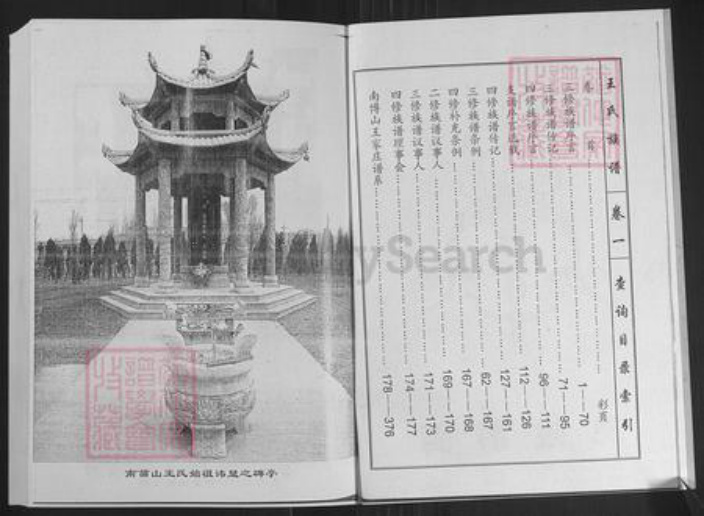 王氏族谱 卷一 查询目录索引
彩页
卷首……1——70
三修族谱序言……71——95
三修族谱传记……96——111
四修族谱序言……112——126
支谱序言选载……127——161
四修族谱传记……62——167
三修族谱条例……167——168
四修补充条例……169——170
二修族谱议事人……171——173
三修族谱议事人……174——177
四修族谱理事会
南博山王家庄谱系……178——376
南博山王氏始祖讳显之碑亭
FamilySearch